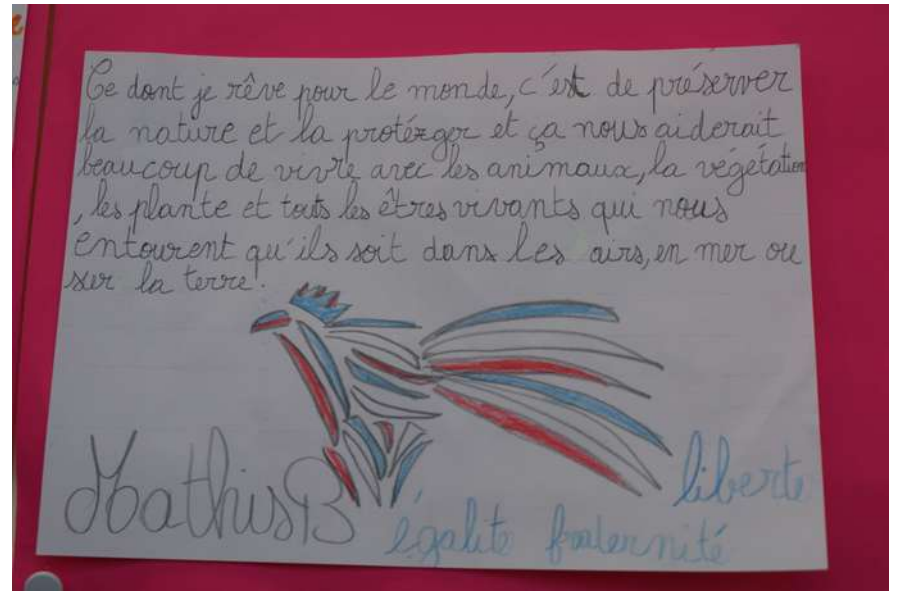 Ce dont je rêve pour le monde, c'est de préserver
la nature et la protéger et ça nous aiderait
beaucoup de vivre avec les animaux, la végétation
, les plante et touts les êtres vivants qui nous
entourent qu'ils soit dans les airs, en mer ou
sur la terre.
Mathis B
liberte
égalite fraternité